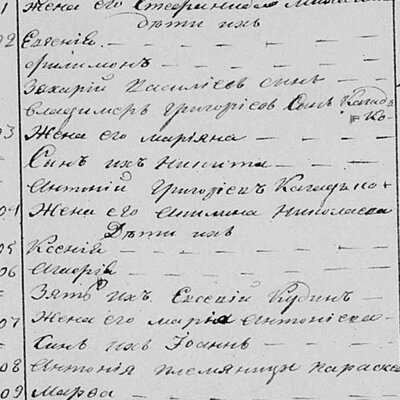 1 Жена его Стефанида
Дѣти ихъ
02 Евгенія
Филимонъ
Захарій Василіевъ сынъ
Владимеръ Григоріевъ Сынъ Кагадѣ
Ко-
03 Жена его Маріяна
Сынъ ихъ Никита
Антоній Григоріевъ Кагадѣко
04 Жена его Акилина Николаева
Дѣти ихъ
05 Ксенія
06 Агафія
Зять ихъ Евсевій Кудинъ
07 Жена его Марія Антоніева
Сынъ ихъ Іоаннъ
08 Антонія племяница Параске
09 Марфа